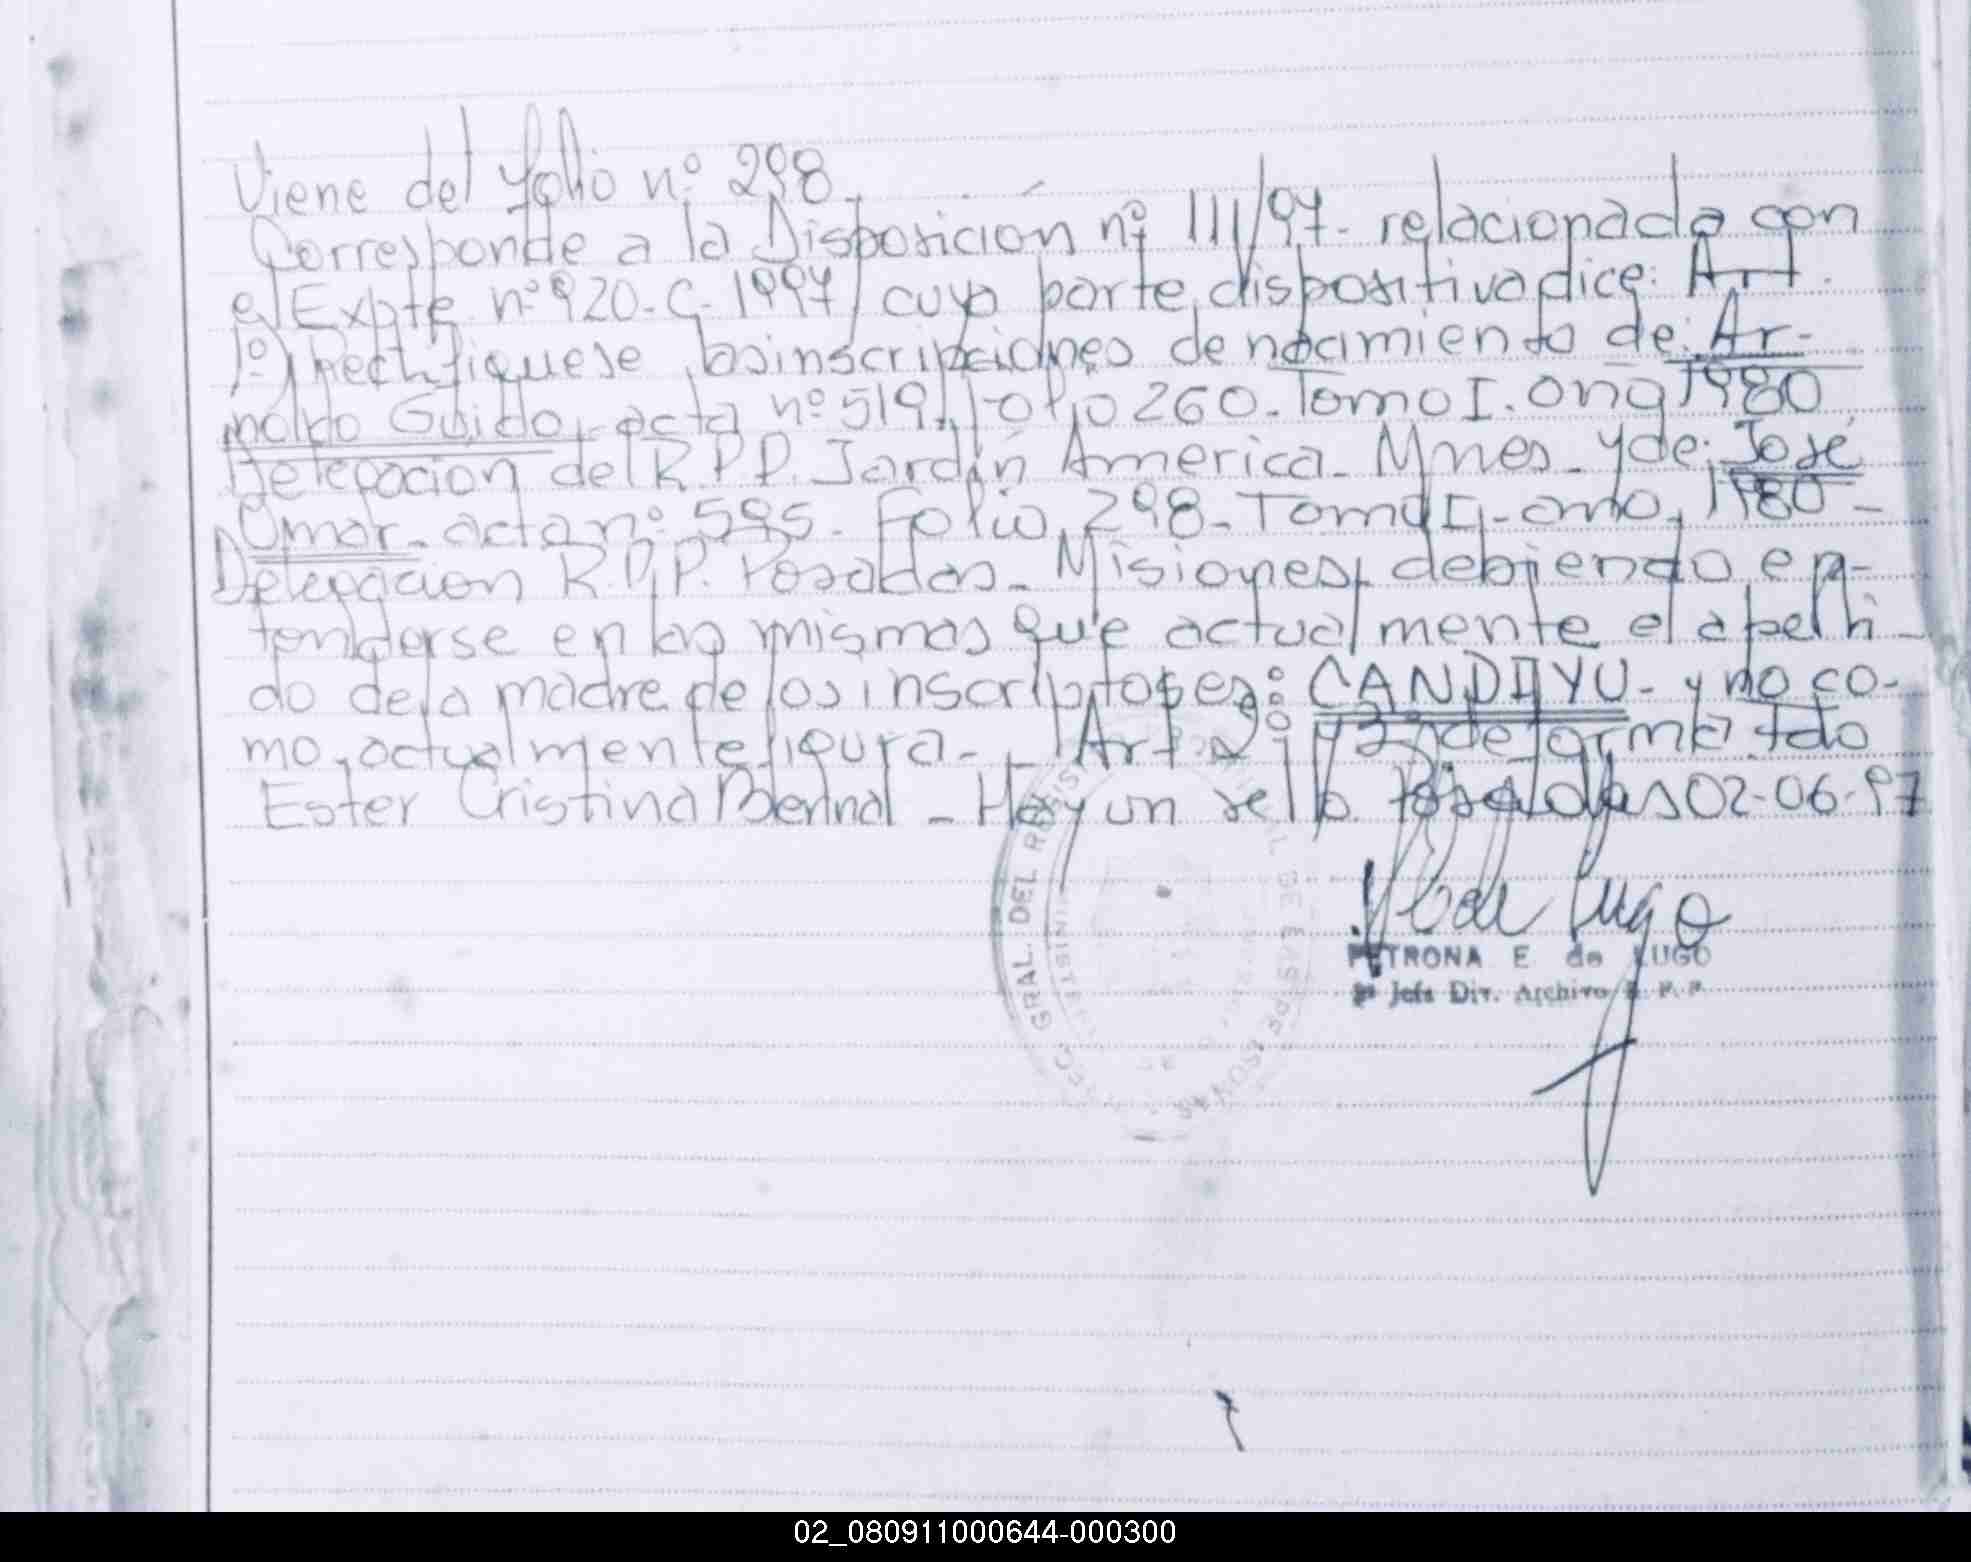 Viene del folio nº 298.
Corresponde a la Disposición nº 111/97- relacionada con
el Expte nº 920-C-1997, cuya parte dispositiva dice: Art.
1º) Rectifiquese las inscripciones de nacimiento de: Ar-
naldo Guido, acta nº 519, Folio 260. Tomo I. año 1980
Delegacion del R.P.P. Jardín America- Mnes- y de: José
Omar- acta nº 595- Folio 298- Tomo I- año 1980-
Delegacion R.P.P. Posadas- Misiones, debiendo en-
tenderse en las mismas que actualmente el apelli-
do de la madre de los inscriptos es: CANDAYU- y no co-
mo actualmente figura- Art 2º: de forma. fdo
Ester Cristina Bernal- Hay un sello. Posadas 02-06-97
PETRONA E de LUGO
Jefa Div. Archivo R. P. P.
GRAL. DEL REGIST
DE LAS PERSONAS
02_080911000644-000300